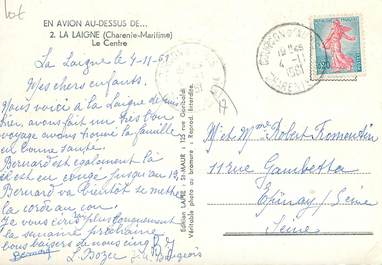 lot
EN AVION AU-DESSUS DE...
2. LA LAIGNE (Charente-Maritime)
Le Centre
La Laigne 4-11-61
Mes chers enfants.
Nous voici à la Laigne depuis
hier, avons fait un très bon
voyage avons trouvé la famille
en bonne santé.
Bernard est également là
il est en congé jusqu'au 19.
Bernard va bientôt se mettre
la corde au cou.
Je vous écris plus longuement
la semaine prochaine
bons baisers de nous cinq
Bernard
L. Bozec
Bourgeois
17
Mr et Mme Robert Fromentin
11 rue Gambetta
Epinay / Seine
Seine
Véritable photo au bromure : Reprod. interdite.
4-11
1961
0,20